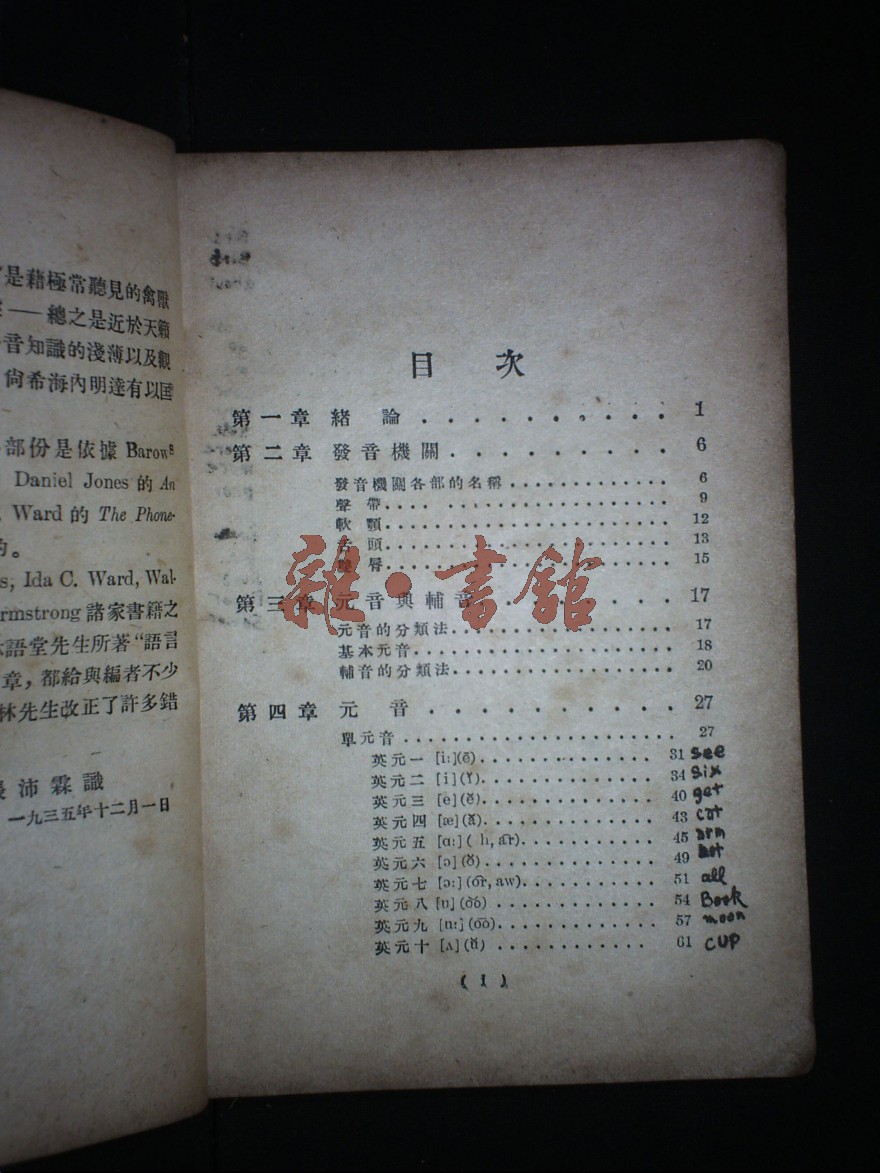 是藉極常聽見的禽獸
——總之是近於天籟
音知識的淺薄以及觀
尙希海內明達有以匡
部份是依據 Barows
Daniel Jones 的 An
Ward 的 The Phone-
的。
s, Ida C. Ward, Wal-
rmstrong 諸家書籍之
語堂先生所著“語言
章, 都給與編者不少
林先生改正了許多錯
沛霖識
一九三五年十二月一日
目次
第一章 緒論 . . . . . . . . . . 1
第二章 發音機關 . . . . . . . . . 6
發音機關各部的名稱 . . . . . . . . . . 6
聲帶 . . . . . . . . . . 9
軟顎 . . . . . . . . . . 12
舌頭 . . . . . . . . . . 13
脣 . . . . . . . . . . 15
第三章 元音與輔音 . . . . . . . . 17
元音的分類法 . . . . . . . . . . 17
基本元音 . . . . . . . . . . 18
輔音的分類法 . . . . . . . . . . 20
第四章 元音 . . . . . . . . . . 27
單元音 . . . . . . . . . . 27
英元一 [i:](ē) . . . . . . . . . . 31 see
英元二 [i](ĭ) . . . . . . . . . . 34 six
英元三 [e](ĕ) . . . . . . . . . . 40 get
英元四 [æ](ă) . . . . . . . . . . 43 cat
英元五 [ɑ:]( h, är) . . . . . . . . . . 45 arm
英元六 [ɔ](ŏ) . . . . . . . . . . 49 hot
英元七 [ɔ:](ôr, aw) . . . . . . . . . . 51 all
英元八 [ʊ](o͝o) . . . . . . . . . . 54 Book
英元九 [u:](o͞o) . . . . . . . . . . 57 moon
英元十 [ʌ](ŭ) . . . . . . . . . . 61 CUP
( I )
雜·書館